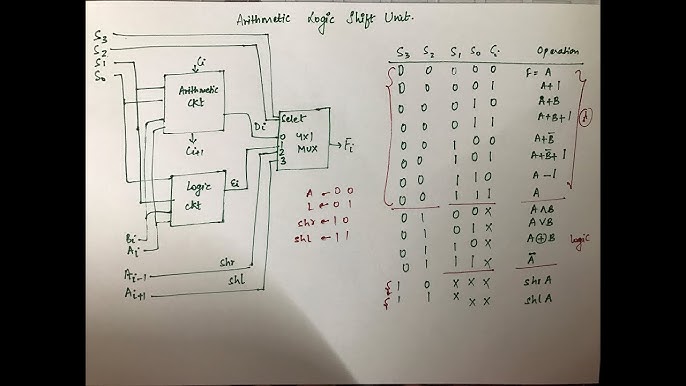 Arithmetic Logic Shift Unit.
S3
S2
S1
S0
Ci
Arithmetic
CKt
Ci+1
Di
Select
0
1
2
3
4x1
MUX
Fi
Logic
ckt
Ei
Bi
Ai
Ai-1
shr
Ai+1
shl
A ← 0 0
L ← 0 1
shr ← 1 0
shl ← 1 1
S3 S2 S1 S0 Ci Operation
0 0 0 0 0 F = A
0 0 0 0 1 A+1
0 0 0 1 0 A+B
0 0 0 1 1 A+B+1
0 0 1 0 0 A+B̅
0 0 1 0 1 A+B̅+1
0 0 1 1 0 A-1
0 0 1 1 1 A
A
0 1 0 0 X A∧B
0 1 0 1 X A∨B
0 1 1 0 X A⊕B
0 1 1 1 X A̅
Logic
1 0 X X X shr A
1 1 X X X shl A